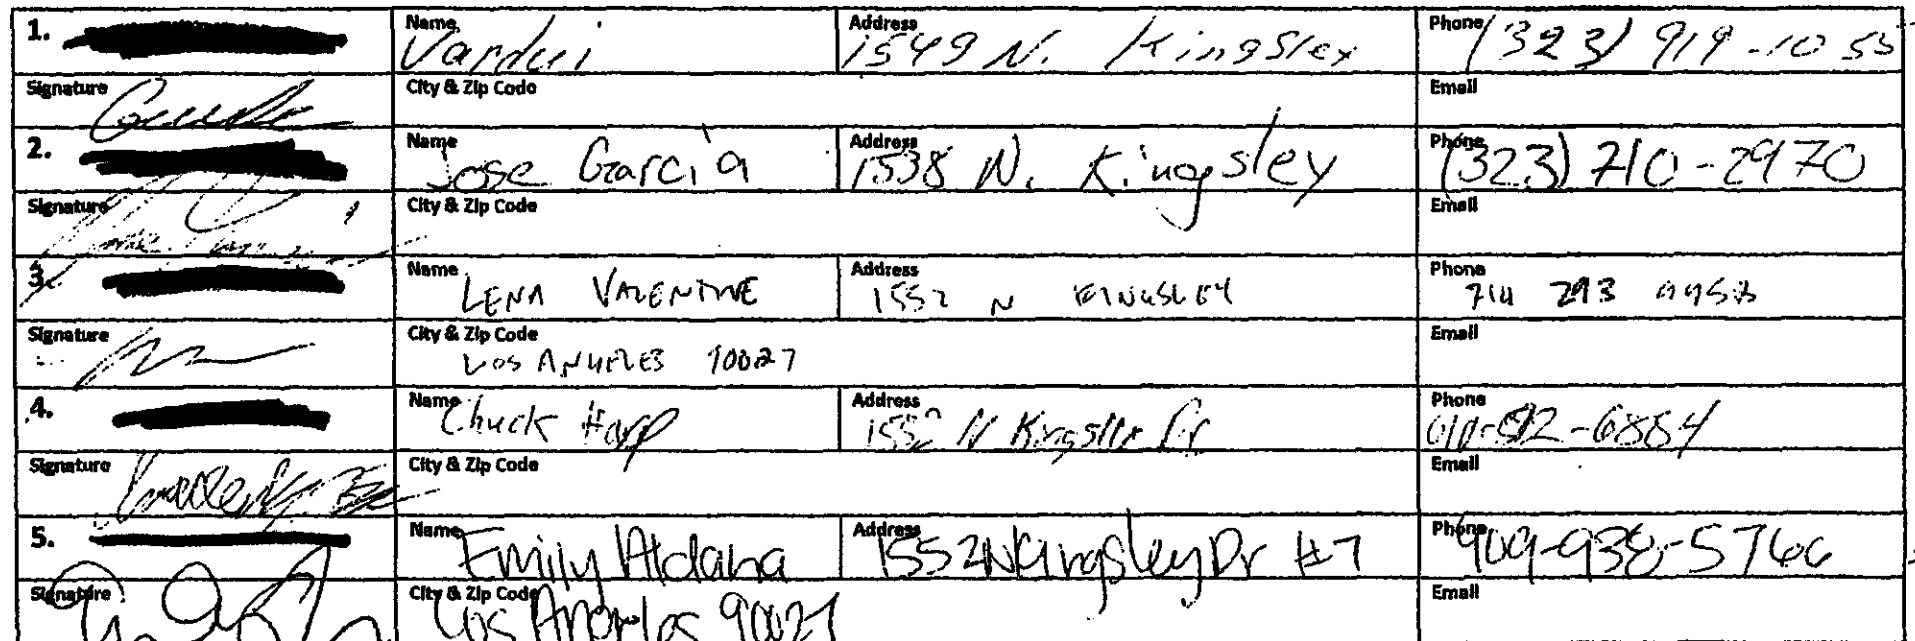 1. Name Vardui Address 1549 N. Kingsley Phone (323) 919-1055
Signature City & Zip Code Email
2. Name Jose Garcia Address 1538 N. Kingsley Phone (323) 710-2970
Signature City & Zip Code Email
3. Name LENA VALENTINE Address 1552 N KINGSLEY Phone 714 293
Signature City & Zip Code LOS ANGELES 90027 Email
4. Name Chuck Address 1552 N Kingsley Dr Phone
Signature City & Zip Code Email
5. Name Emily Aldana Address 1552 N Kingsley Dr #7 Phone 909-938-5766
Signature City & Zip Code Los Angeles 90027 Email